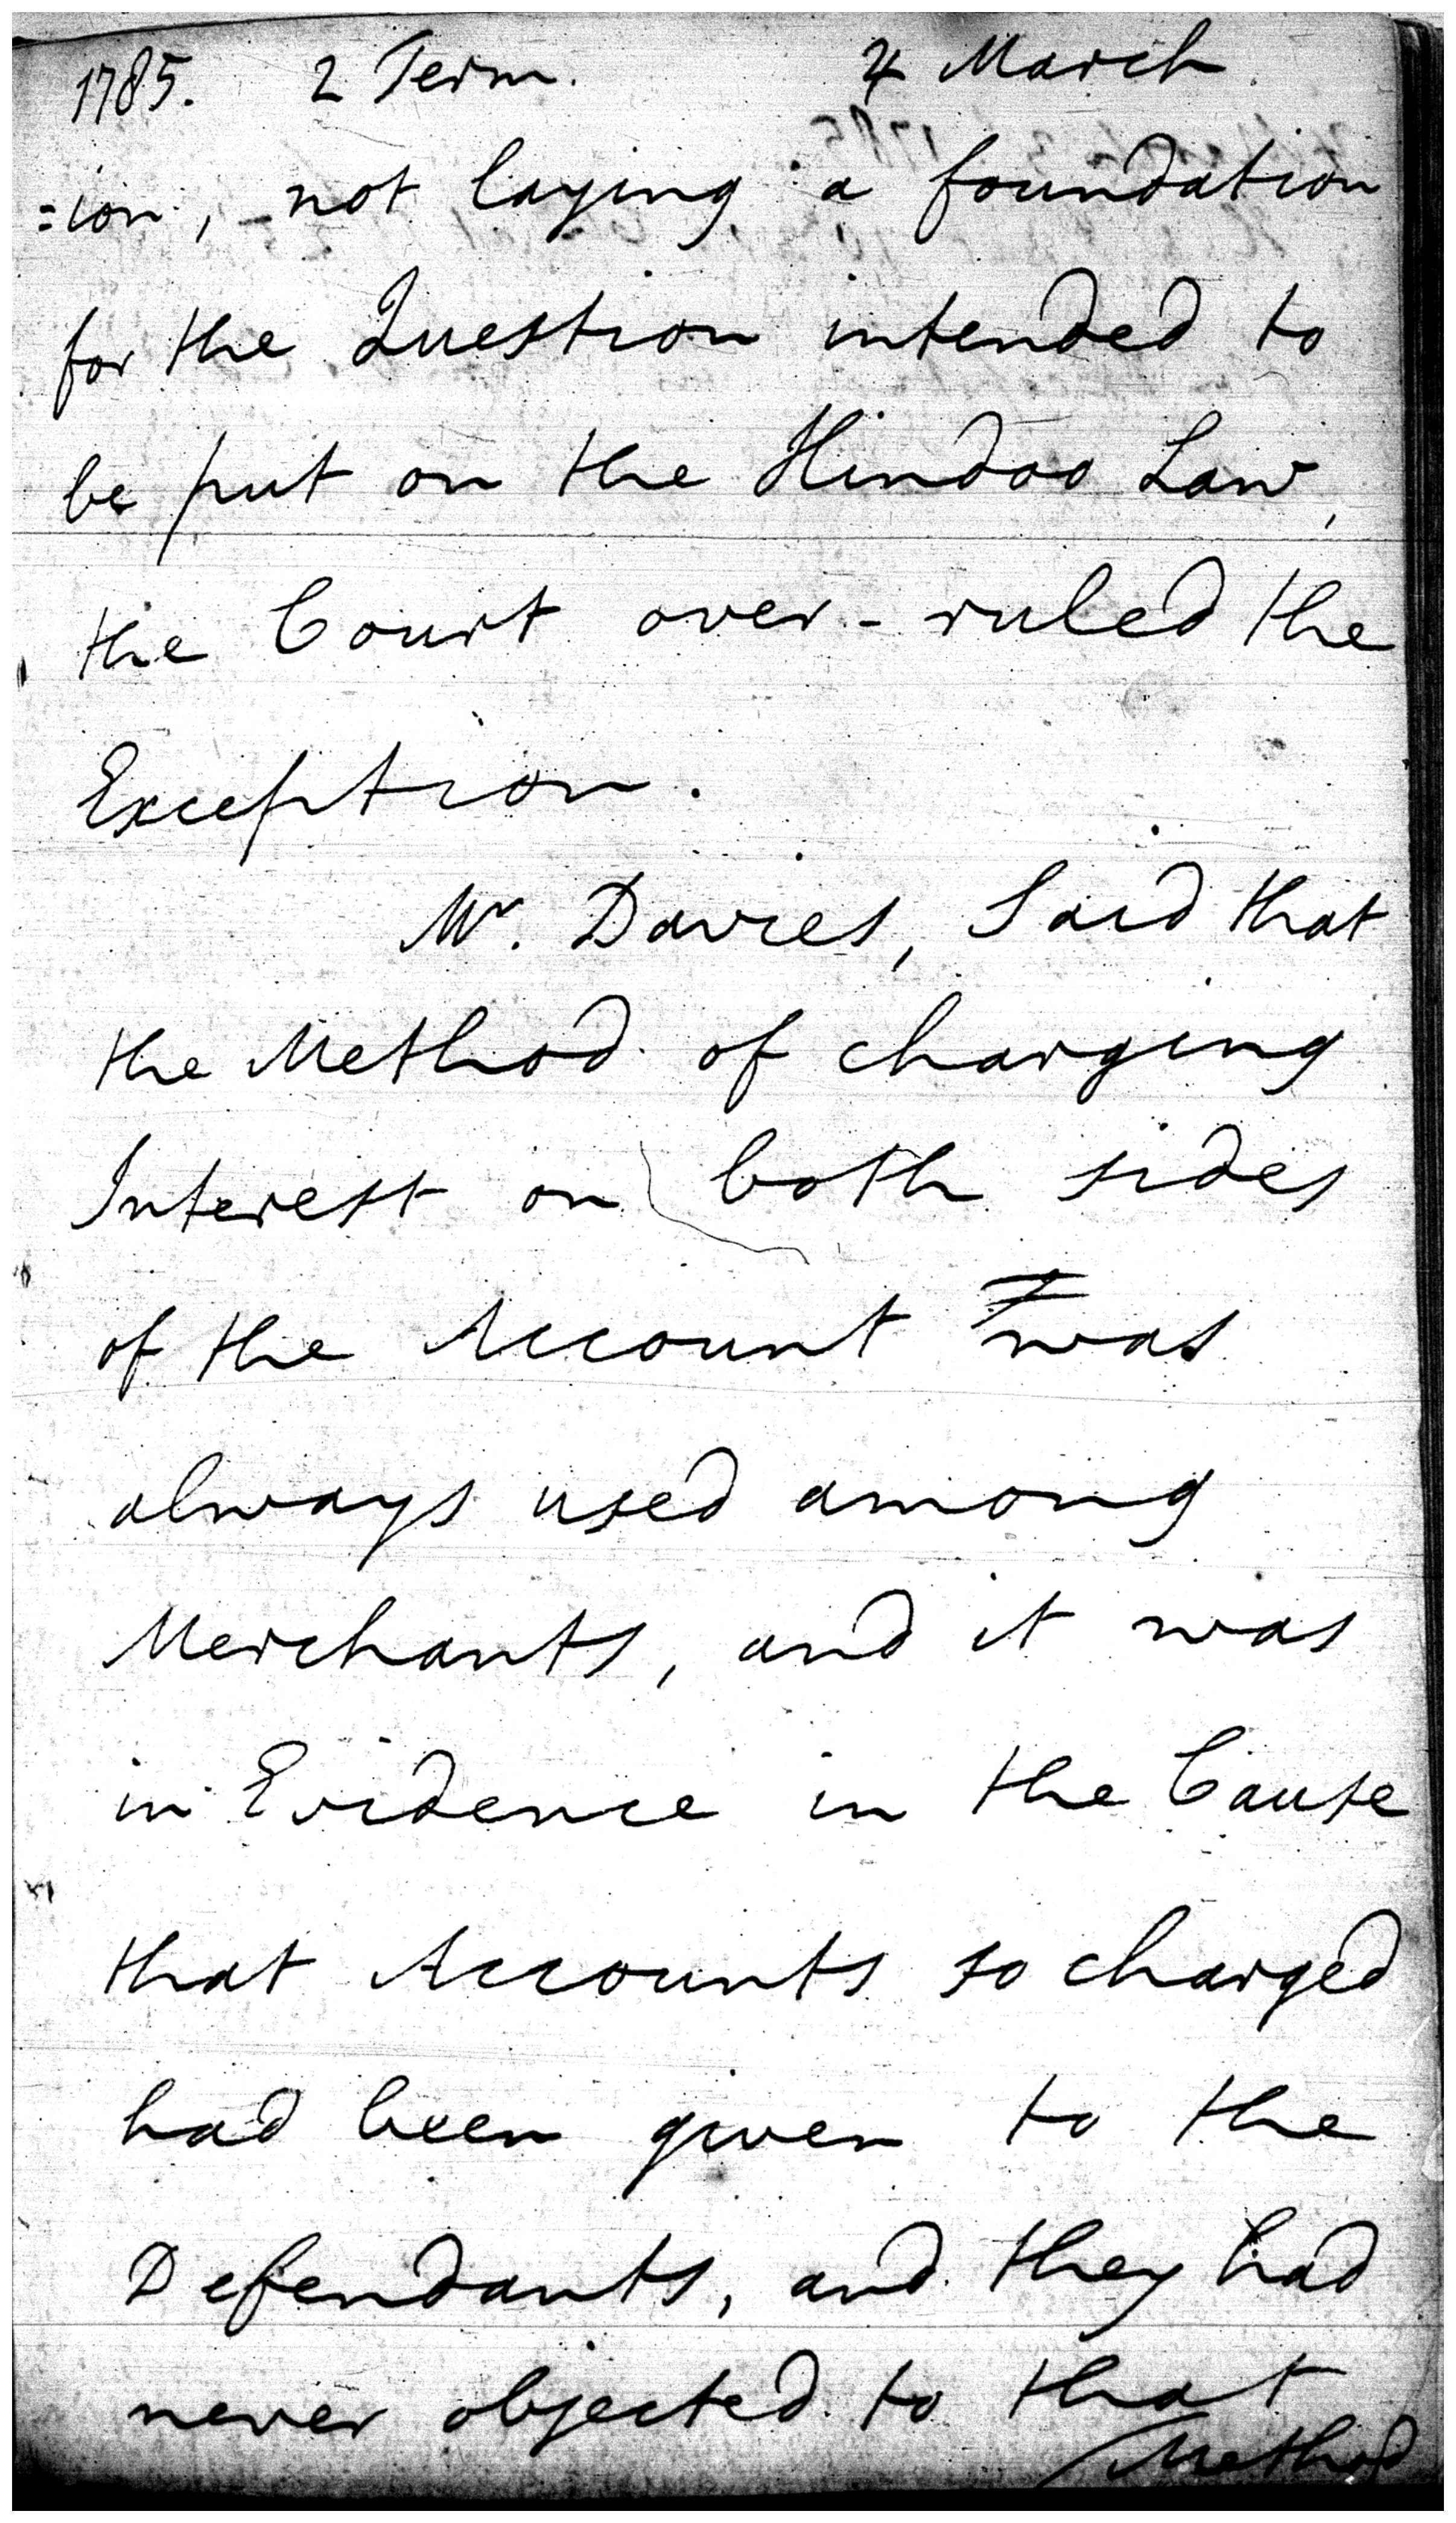 1785. 2 Term. 4 March
=ion, not laying a foundation
for the Question intended to
be put on the Hindoo Law,
the Court over-ruled the
Exception.
Mr. Davies, Said that
the Method of charging
Interest on both sides
of the Account was
always used among
Merchants, and it was
in Evidence in the Cause
that Accounts so charged
had been given to the
Defendants, and they had
never objected to that
Method